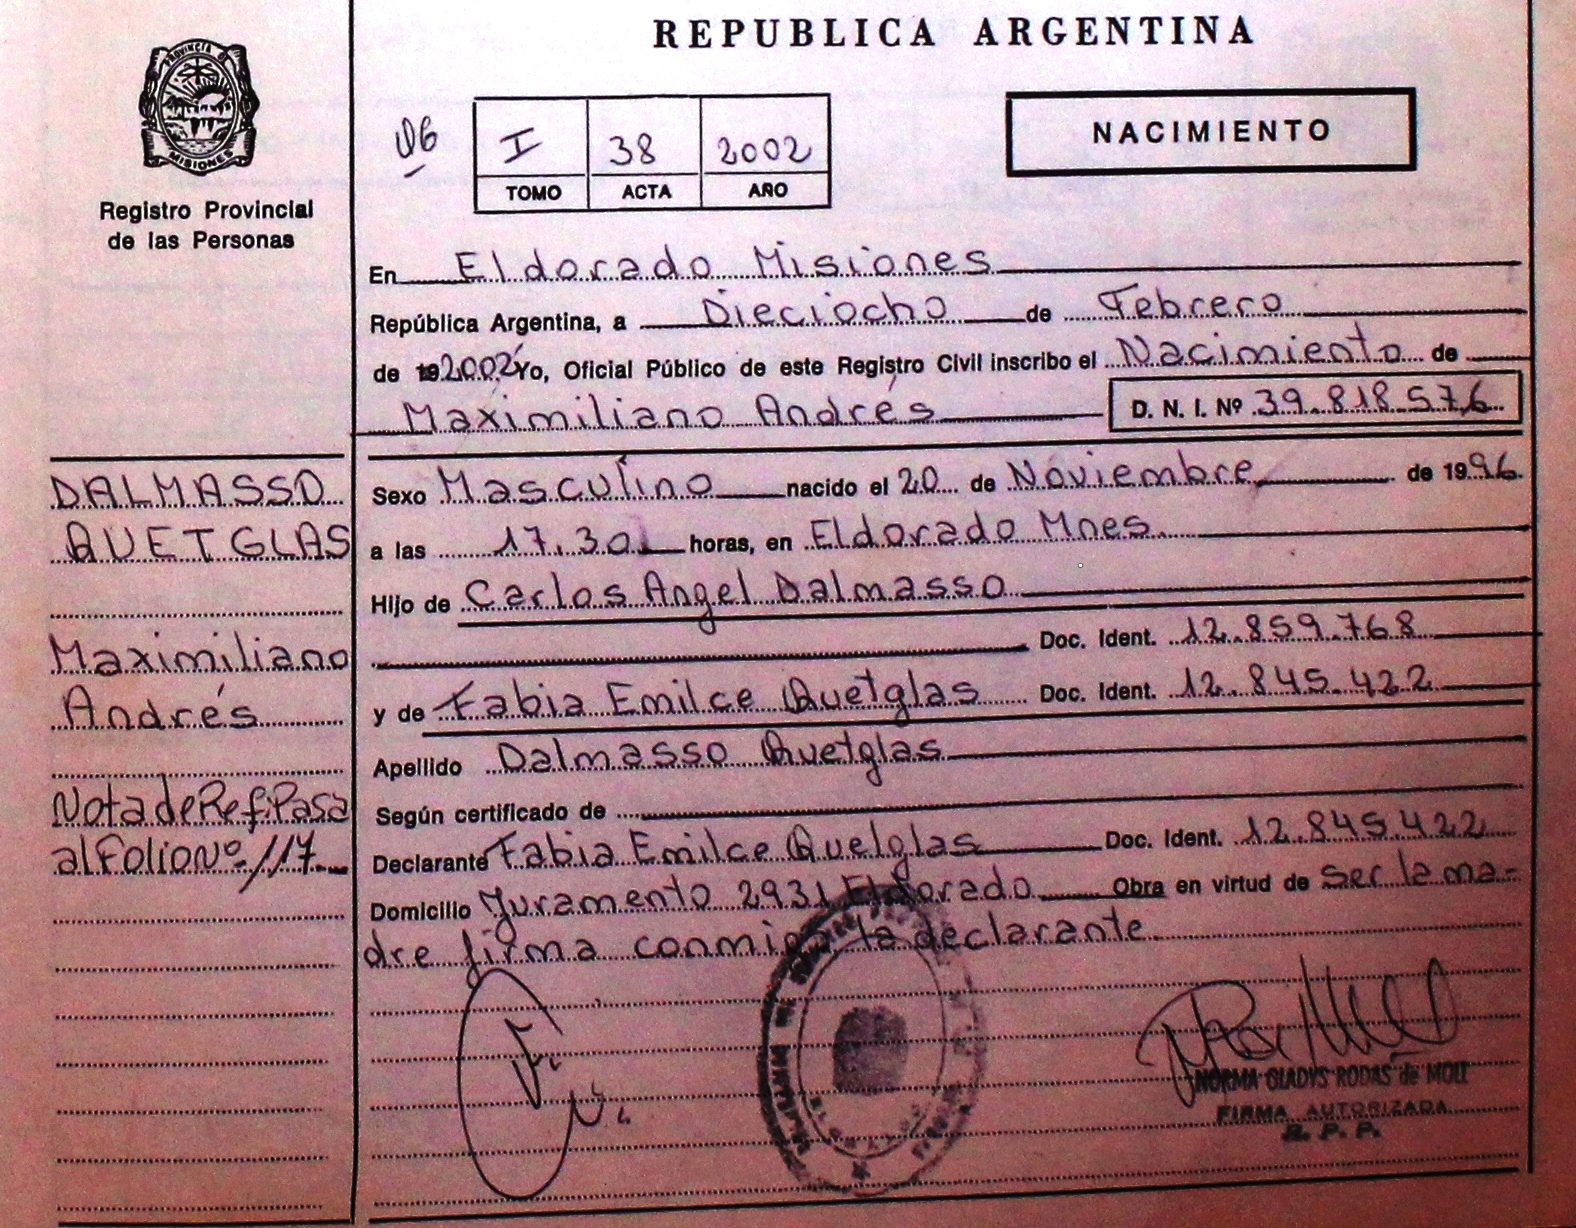 REPUBLICA ARGENTINA
PROVINCIA D
MISIONES
Registro Provincial
de las Personas
I 38 2002
TOMO ACTA AÑO
NACIMIENTO
En Eldorado Misiones
República Argentina, a Dieciocho de Febrero
de 192002 Yo, Oficial Público de este Registro Civil inscribo el Nacimiento de
Maximiliano Andrés D. N. I. Nº 39.818.576
DALMASSO
QUETGLAS
Maximiliano
Andrés
Nota de Ref. Pasa
al Folio Nº 117
Sexo Masculino nacido el 20 de Noviembre de 1996
a las 17.30 horas, en Eldorado Mnes.
Hijo de Carlos Angel Dalmasso
Doc. Ident. 12.859.768
y de Fabia Emilce Quetglas Doc. Ident. 12.845.422
Apellido Dalmasso Quetglas
Según certificado de
Declarante Fabia Emilce Quelglas Doc. Ident. 12.845.422
Domicilio Juramento 2931 Eldorado Obra en virtud de ser la ma-
dre firma conmigo la declarante
NORMA GLADYS RODAS de MOLL
FIRMA AUTORIZADA
R. P. P.